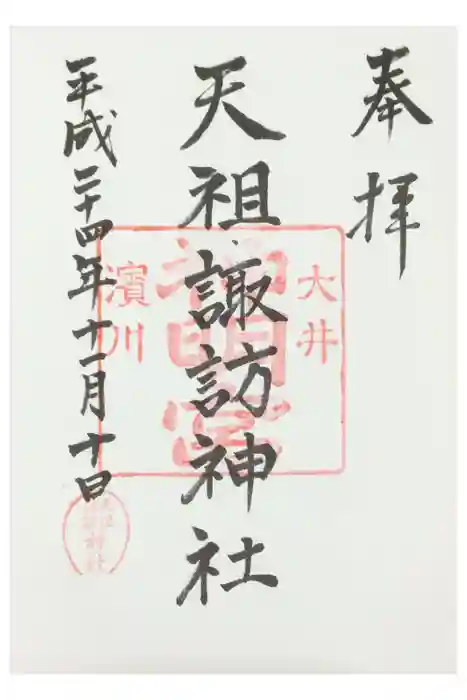 奉拝
天祖諏訪神社
平成二十四年十一月十日
大井
神明宮
濱川